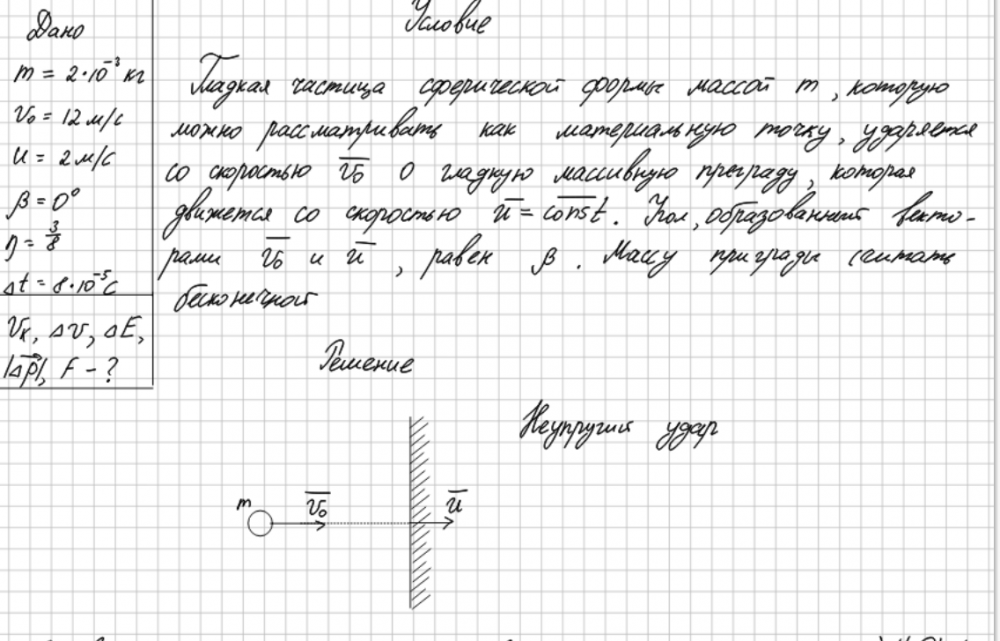 Дано
m = 2·10⁻³ кг
V₀ = 12 м/с
U = 2 м/с
β = 0°
η = 3/8
Δt = 8·10⁻⁵ с
Vк, Δv, ΔE,
|Δp|, F - ?
Условие
Гладкая частица сферической формы массой m, которую
можно рассматривать как материальную точку, ударяется
со скоростью v̅₀ о гладкую массивную преграду, которая
движется со скоростью u̅ = const. Угол, образованный векто-
рами v̅₀ и u̅, равен β. Массу приграды считать
бесконечной
Решение
Неупругий удар
m v̅₀ u̅